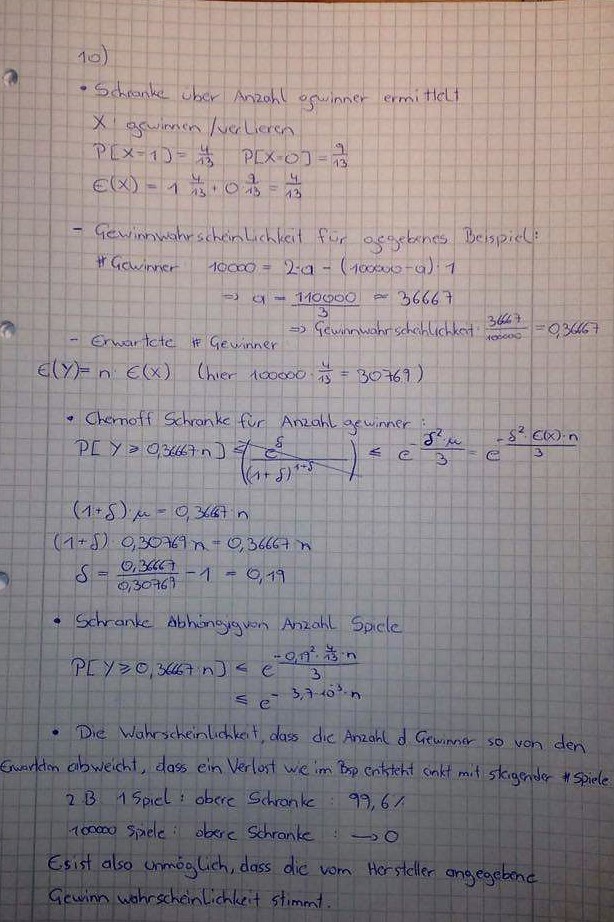 10)
• Schranke über Anzahl gewinner ermittelt
X: gewinnen/verlieren
P[X=1] = 4/13 P[X=0] = 9/13
E(X) = 1 4/13 + 0 9/13 = 4/13
- Gewinnwahrscheinlichkeit für gegebenes Beispiel:
# Gewinner 10000 = 2·a - (100000-a)·1
=> a = 110000/3 ≈ 36667
=> Gewinnwahrscheinlichkeit: 36667/100000 = 0,36667
- Erwartete # Gewinner
E(Y) = n · E(X) (hier 100000 · 4/13 = 30769)
• Chernoff Schranke für Anzahl gewinner:
P[Y ≥ 0,36667·n] ≤ (e^δ/(1+δ)^(1+δ)) ≤ e^(-δ²·μ/3) = e^(-δ²·E(X)·n/3)
(1+δ)·μ = 0,3667·n
(1+δ)·0,30769·n = 0,36667·n
δ = 0,36667/0,30769 - 1 = 0,19
• Schranke Abhängig von Anzahl Spiele
P[Y ≥ 0,36667·n] ≤ e^(-0,19²·4/13·n/3)
≤ e^(-3,7·10^-3·n)
• Die Wahrscheinlichkeit, dass die Anzahl d. Gewinner so von den
Erwarteten abweicht, dass ein Verlost wie im Bsp entsteht sinkt mit steigender # Spiele
z B 1 Spiel: obere Schranke: 99,6%
100000 Spiele: obere Schranke: → 0
Es ist also unmöglich, dass die vom Hersteller angegebene
Gewinn wahrscheinlichkeit stimmt.